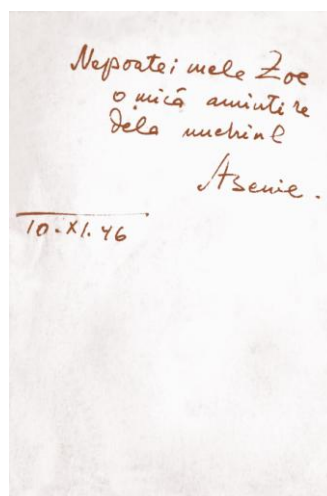 Nepoatei mele Zoe
o mică amintire
dela unchiul
Arsenie.
10.XI.46